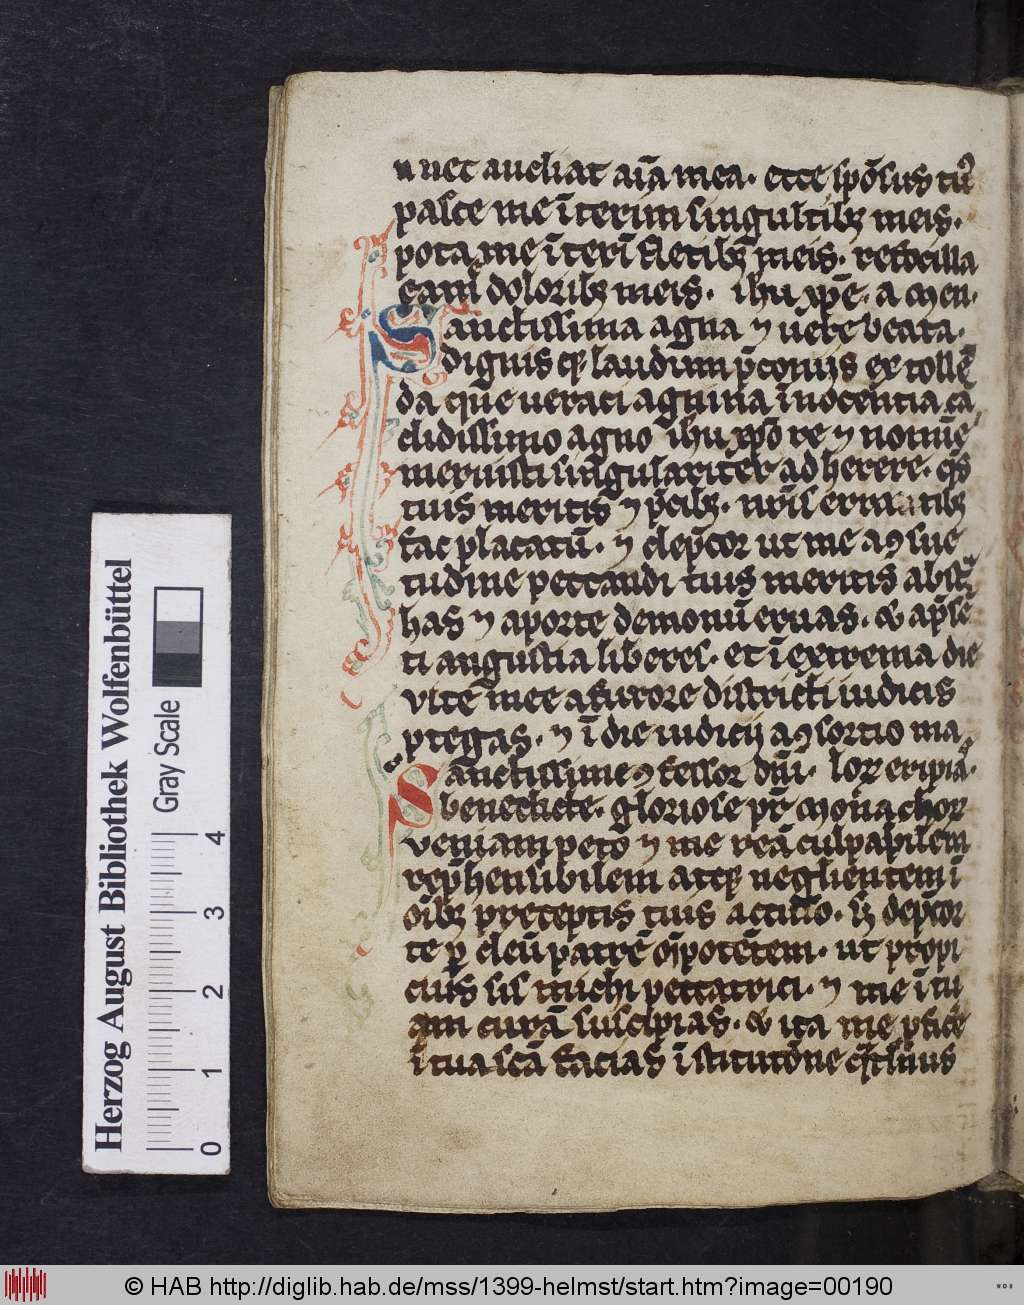 n nec aueliat aīa mea. ecce spōsus tuꝰ
pasce me īterim singultibꝫ meis.
pota me īterī fletibꝫ meis. refocilla
eam doloribꝫ meis. ihu xp̄e. amen.
Sanctissima agna ⁊ uere beata.
dignis qꝫ laudum p̄coniis extollē
da que ueraci agnina īnocentia cā
didissimo agno ihu xp̄o re ⁊ nomīe
meruisti singulariter adherere. q̄s
tuis meritis ⁊ p̄cibꝫ.
fac placatū. ⁊ dep̄cor ut me a ꝯsue
tudine peccandi tuis meritis abst̄
has ⁊ a porte demonū eruas. & a p̄sē
ti angustia liberes. et ī extrema die
vite mee a furore districti iudicis
ptegas. ⁊ ī die iudicii a ꝯsortio ma
Sanctissime ꝯfessor dn̄i. loꝝ eripiā.
benedicte. gloriose pr̄ monachoꝝ
veniam peto ⁊ me reā culpabilem
rep̄hensibilem atqꝫ neglientem ī
oībꝫ preceptis tuis dep̄cor
te p deū patrē oīpotētem. ut propi
cius sis michi peccatrici. ⁊ me ī tu
am curā suscipias. & ita me pfice
ī tua scā facias īstitutōne
Herzog August Bibliothek Wolfenbüttel
Gray Scale
0 1 2 3 4
© HAB http://diglib.hab.de/mss/1399-helmst/start.htm?image=00190